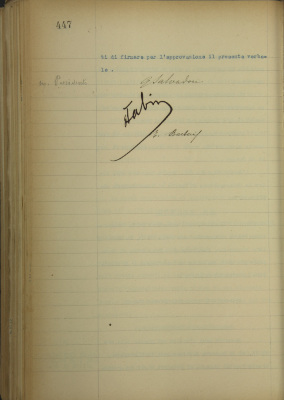 447
ti di firmare per l'approvazione il presente verba-
le .
G Salvadori
Fabin